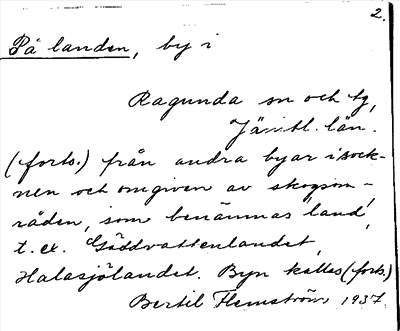 2.
På landen, by i
Ragunda sn och tg,
Jämtl. län.
(forts.) från andra byar i sock-
nen och omgiven av skogsom-
råden, som benämnas land,
t. ex. Gäddvattenlandet,
Halasjölandet. Byn kallas (forts.)
Bertil Flemström 1937.